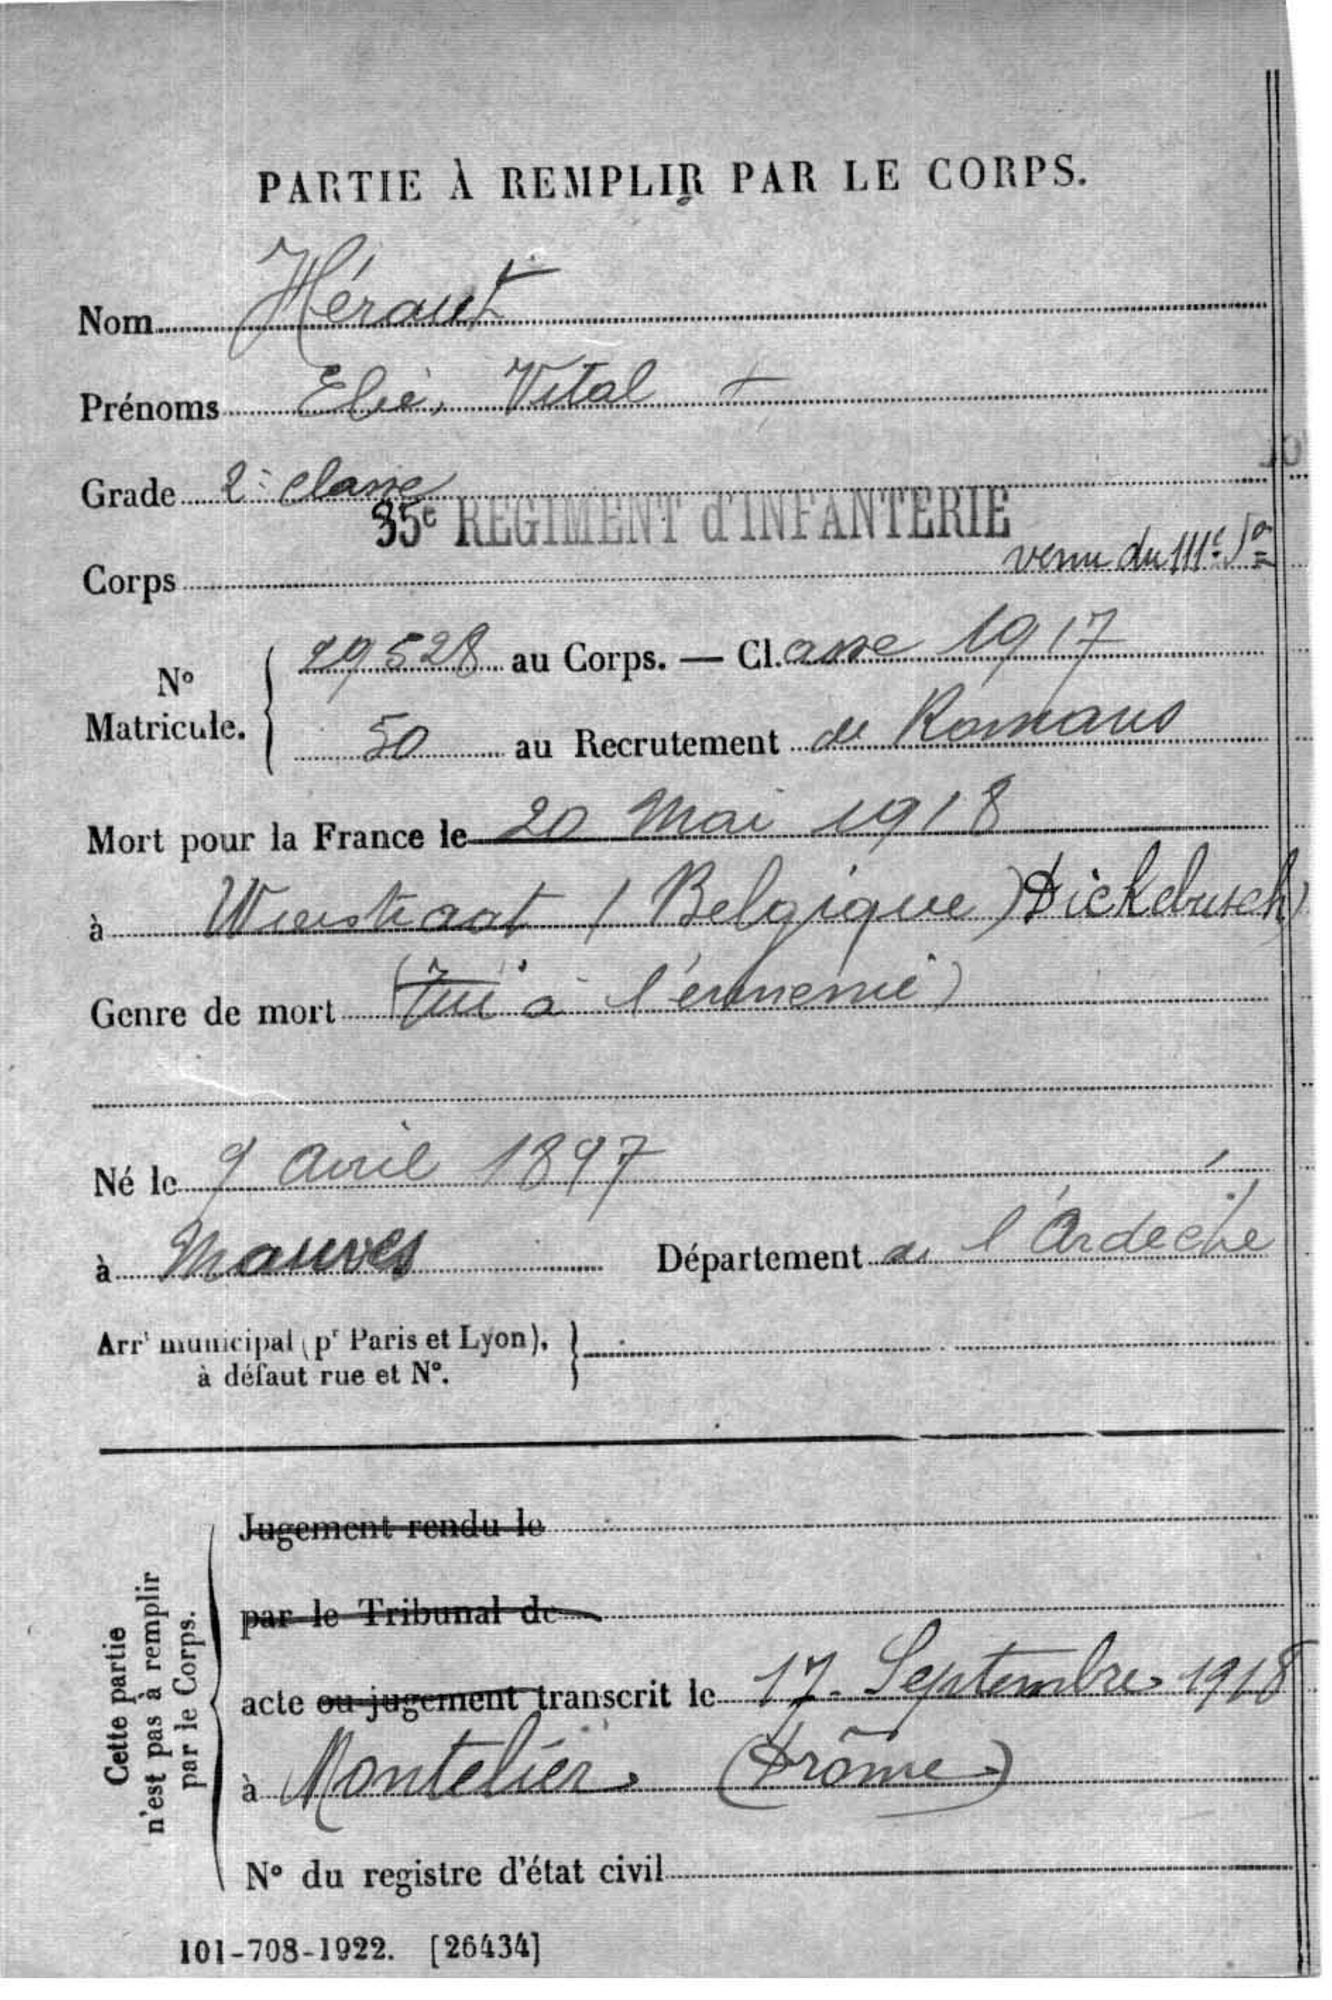 PARTIE À REMPLIR PAR LE CORPS.
Nom Héraut
Prénoms Elie, Vital
Grade 2e classe
35e REGIMENT d'INFANTERIE
Corps venu du 111e
No Matricule. 29528 au Corps. — Cl.asse 1917
50 au Recrutement de Romans
Mort pour la France le 20 Mai 1918
à Wierstraat (Belgique) Dickebusch)
Genre de mort (Tué à l'ennemi)
Né le 9 Avril 1897
à Mauves Département de l'Ardèche
Arrt municipal (pr Paris et Lyon),
à défaut rue et No.
Cette partie
n'est pas à remplir
par le Corps.
Jugement rendu le
par le Tribunal de
acte ou jugement transcrit le 17. Septembre 1918
à Montelier. (Drôme)
No du registre d'état civil
101-708-1922. [26434]